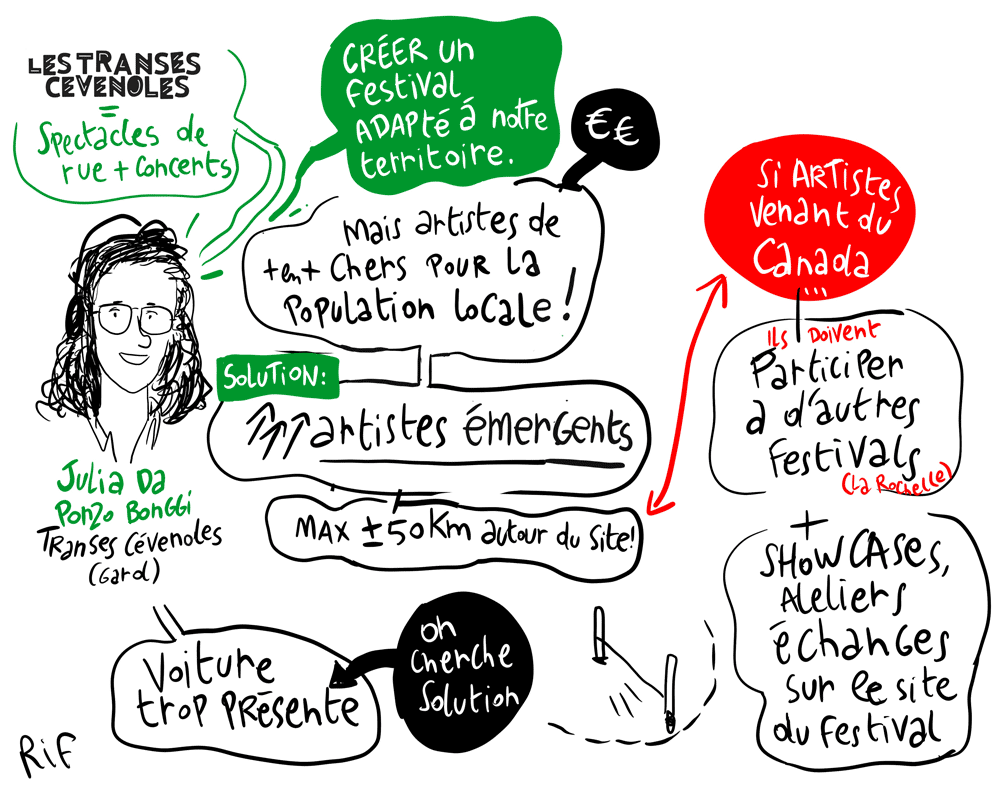 LES TRANSES
CEVENOLES
=
Spectacles de
rue + concerts
CRÉER un
festival
ADAPté à notre
territoire.
€€
Mais artistes de
+ en + chers POUR la
POPulation locale !
SOLUTION:
↑↑↑ artistes émergents
MAX ± 50 Km autour du site!
Julia Da
Ponzo Bonggi
TRanses Cévenoles
(Gard)
Voiture
trop PRésente
on
cherche
solution
Si ARTistes
venant du
Canada
...
Ils Doivent
Participer
à d'autres
Festivals
(La Rochelle)
+
SHOWCASES,
Ateliers
échanges
sur le site
du festival
RiF